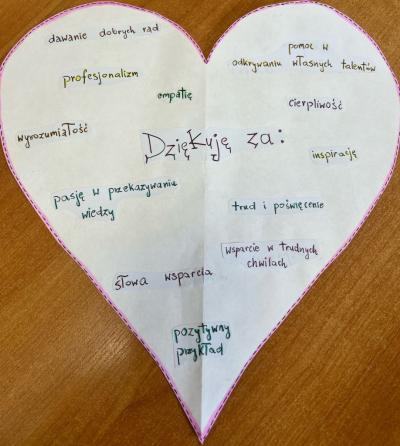 dawanie dobrych rad
pomoc w
odkrywaniu własnych talentów
profesjonalizm
empatię
cierpliwość
wyrozumiałość
Dziękuję za:
inspirację
pasję w przekazywaniu
wiedzy
trud i poświęcenie
wsparcie w trudnych
chwilach
słowa wsparcia
pozytywny
przykład